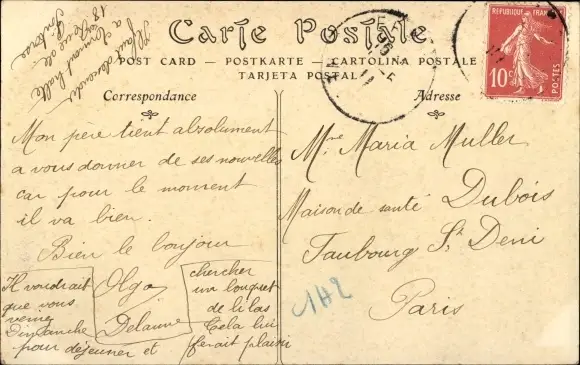 Carte Postale
POST CARD — POSTKARTE — CARTOLINA POSTALE
TARJETA POSTAL
Correspondance
Adresse
RÉPUBLIQUE FRANÇAISE
10c
POSTES
Mon père tient absolument
a vous donner de ses nouvelles
car pour le moment
il va bien.
Bien le bonjour
Olga
Delaune
Il voudrait
que vous
veniez
Dimanche
pour déjeuner et
chercher
un bouquet
de lilas
Cela lui
ferait plaisir
Mme Maria Muller
Maison de santé Dubois
Faubourg St Deni
Paris
142